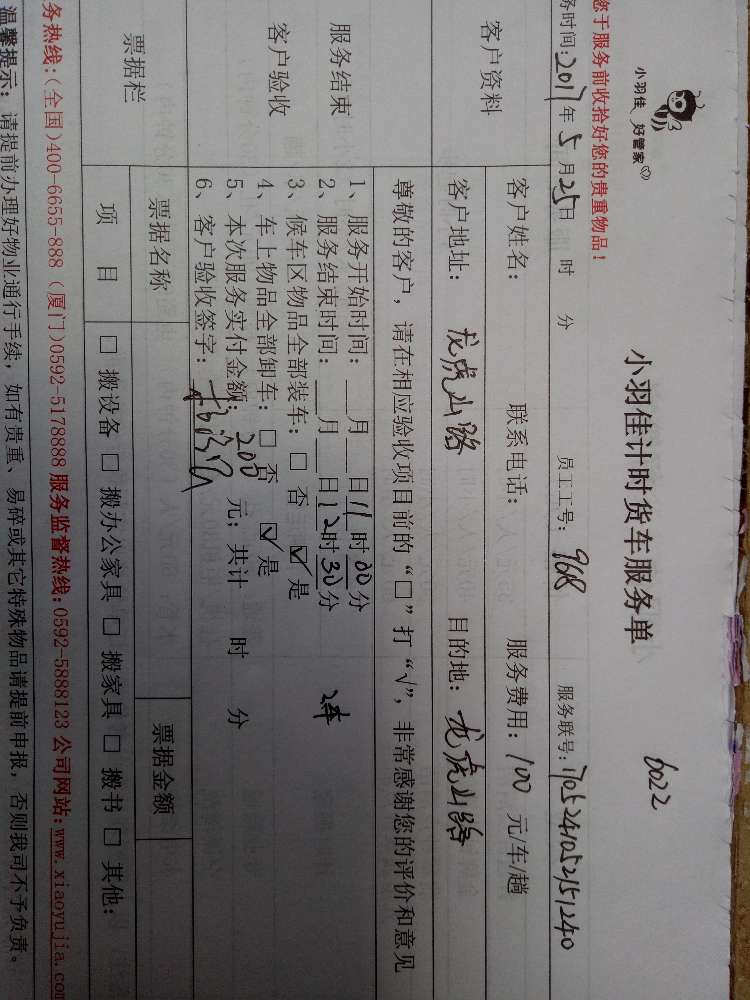 小羽佳 好管家
小羽佳计时货车服务单
6022
您于服务前收拾好您的贵重物品！
务时间：2017年5月25日 时 分 员工工号：968 服务联号：1705241052151240
客户资料
客户姓名： 联系电话： 服务费用：100 元/车/趟
客户地址：龙虎山路 目的地：龙虎山路
服务结束
客户验收
尊敬的客户，请在相应验收项目前的“□”打“√”，非常感谢您的评价和意见
1、服务开始时间：__月__日11时00分
2、服务结束时间：__月__日12时30分 2车
3、候车区物品全部装车：□ 否 ☑ 是
4、车上物品全部卸车：□ 否 ☑ 是
5、本次服务实付金额：200 元；共计 时 分
6、客户验收签字：
票据栏
票据名称 票据金额
项 目 □ 搬设备 □ 搬办公家具 □ 搬家具 □ 搬书 □ 其他：
务热线：(全国)400-6655-888 (厦门)0592-5178888 服务监督热线：0592-5888123 公司网站：www.xiaoyujia.com
温馨提示：请提前办理好物业通行手续，如有贵重、易碎或其它特殊物品请提前申报，否则我司不予负责。